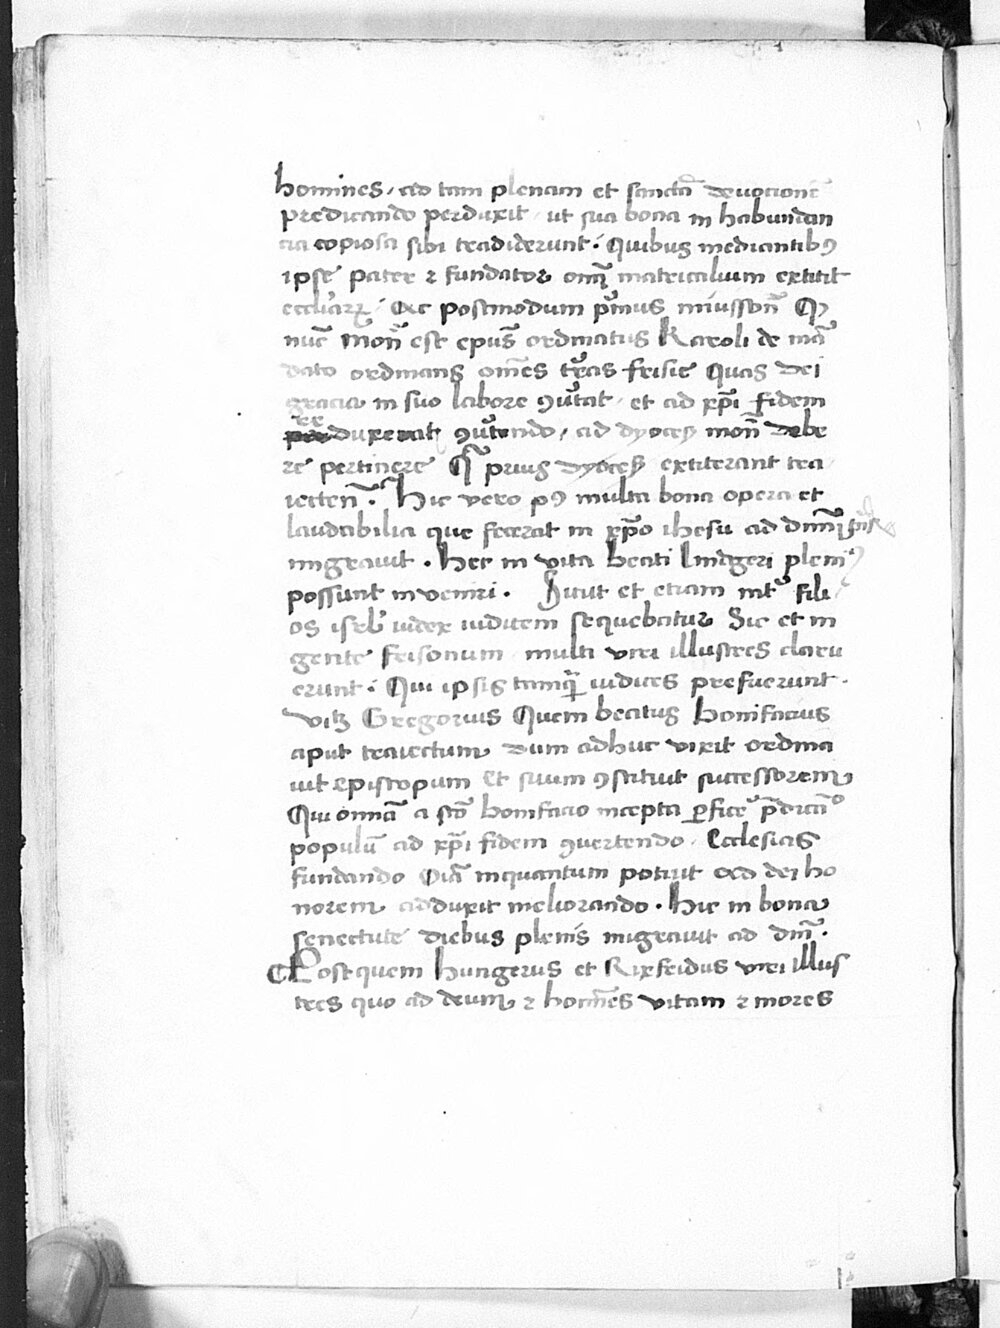 homines / ad tam plenam et sanctā deuotionē
predicando perduxit / ut sua bona in habundan
cia copiosa sibi tradiderunt . Quibus mediantibꝰ
ipse pater ⁊ fundator om̄ matricalium extitit
eccl'iarꝝ / Ac postmodum p'mus miusson̄ Qͥ
nūc mon̄ est ep̄us ordinatus Karoli de mā
dato ordinans om̄es t'ras frisie Quas dei
gracia in suo labore ꝯu'tat / et ad xp̄i fidem
re
duxerat ꝯu'tendo / ad dyoces̄ mon̄ debe
re pertinere Q̄ prius dyoces̄ extiterant tra
iecten̄ . Hic vero pꝰ multa bona opera et
laudabilia que fecerat in xp̄o ihesu ad dn̄m
migrauit . Hec in vita beati ludgeri pleniꝰ
possunt inveniri . Sicut et etiam int' fili
os isrl' iudex iudicem sequebatur Sic et in
gente frisonum multi viri illustres claru
erunt . Qui ipsis tamq̄ iudices prefuerunt .
vitꝫ Gregorius Quem beatus bonifacius
aput traiectum dum adhuc vixit ordina
uit episcopum Et suum ꝯstituit successorem
Qui omnia a scō bonifacio incepta ꝑfic' p̄dicādo
populū ad xp̄i fidem ꝯuertendo . Ecclesias
fundando Oīa inquantum potuit ad dei ho
norem adduxit meliorando . Hic in bona
senectute diebus plenis migrauit ad dn̄m .
Post quem hungerus et Rixfridus viri illus
tres quo ad deum ⁊ hom̄es vitam ⁊ mores